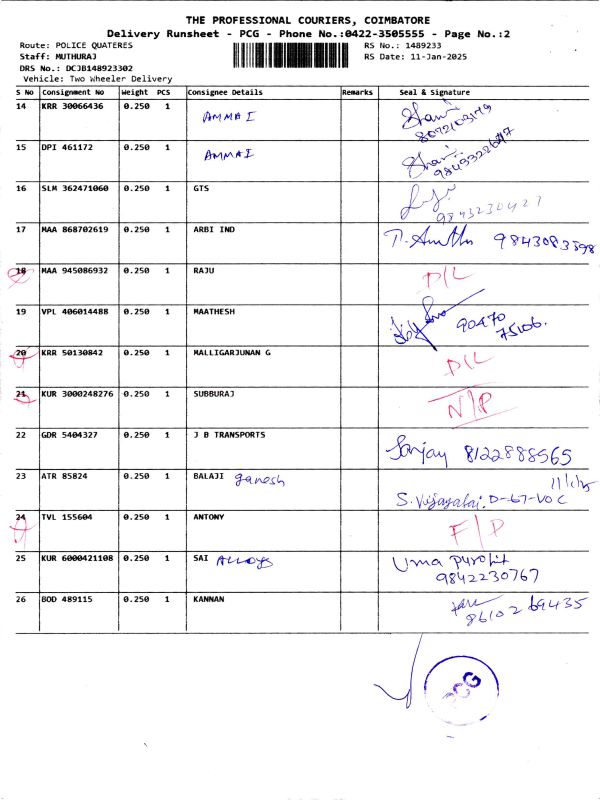 THE PROFESSIONAL COURIERS, COIMBATORE
Delivery Runsheet - PCG - Phone No.:0422-3505555 - Page No.:2
Route: POLICE QUATERES RS No.: 1489233
Staff: MUTHURAJ RS Date: 11-Jan-2025
DRS No.: DCJB148923302
Vehicle: Two Wheeler Delivery
S No Consignment No Weight PCS Consignee Details Remarks Seal & Signature
14 KRR 30066436 0.250 1 AMMAI
15 DPI 461172 0.250 1 AMMAI
16 SLM 362471060 0.250 1 GTS 9843230427
17 MAA 868702619 0.250 1 ARBI IND 9843083898
18 MAA 945086932 0.250 1 RAJU D/L
19 VPL 406014488 0.250 1 MAATHESH 90470
75106.
20 KRR 50130842 0.250 1 MALLIGARJUNAN G D/L
21 KUR 3000248276 0.250 1 SUBBURAJ N/P
22 GDR 5404327 0.250 1 J B TRANSPORTS Sanjay 8122888565
23 ATR 85824 0.250 1 BALAJI ganesh 11/1/25
S. D-67-VOC
24 TVL 155604 0.250 1 ANTONY F/P
25 KUR 6000421108 0.250 1 SAI ALLOYS Uma Purohit
9842230767
26 BOD 489115 0.250 1 KANNAN 86102 69435
PCG